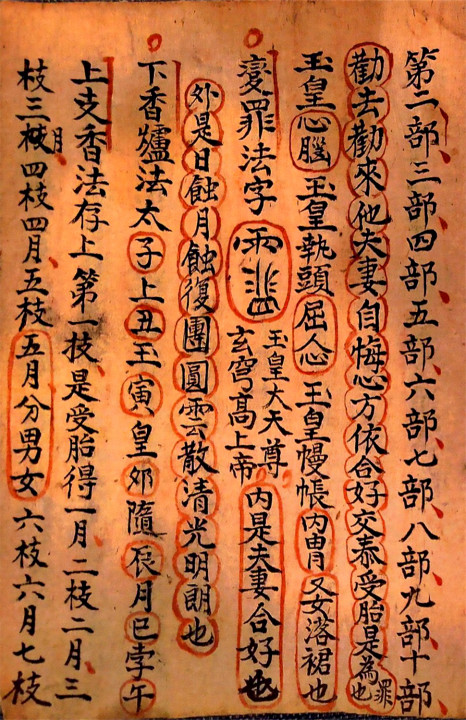 第二部、三部、四部、五部、六部、七部、八部、九部、十部、
勸去勸來他夫妻自悔心方依合好交泰受胎是為罪也
玉皇心腦玉皇執頭屈人心玉皇幔帳內冑又女落裙也
變罪法字
玉皇大天尊
玄穹高上帝
內是夫妻合好也
外是日蝕月蝕復團圓雲散清光明朗也
下香爐法太子上丑玉寅皇卯隨辰月巳孛午
上支香法存上第一枝、是受胎得一月、二枝二月、三
枝三月、四枝四月、五枝五月分男女六枝六月七枝